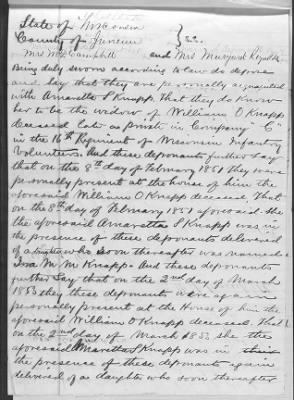 State of Wisconsin
County of Juneau } SS.
Mrs M. Campbell and Mrs Margaret
Being duly sworns according to law do depose
and say that they are personally acquainted
with Amaretta S Knapp. That they do know
her to be the widow of William O Knapp
deceased Late a private in Company "C"
in the 16th Regiment of Wisconsin Infantry
Volunteers. And these deponants further say
that on the 8th day of February 1851 they were
personally present at the house of him the
aforesaid William O Knapp deceased, That
on the 8th day of February 1851 aforesaid she
the aforesaid Amaretta S Knapp was in
the presence of these deponants delivered
of a daughter who soon thereafter was named
M. M Knapp. And these deponants
further say that on the 2nd day of March
1853 they these deponants were again
personally present at the House of him the
aforesaid William O Knapp deceased. That
on the 2nd day of March 1853 she the
aforesaid Amaretta S Knapp was in
the presence of these deponants again
delivered of a daughter who soon thereafter